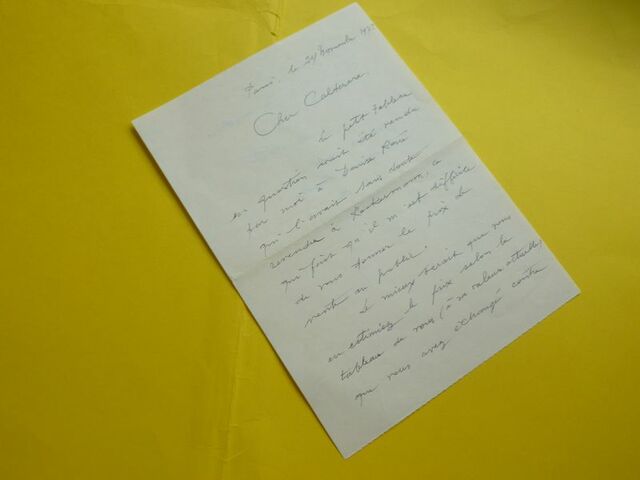 Paris, le 24 Novembre
Cher Calderara,
le petit tableau
en question avait été vendu
par moi à Denise René
qui l'avait sans doute
revendu à Lochermann, ce
qui fait qu'il m'est difficile
de vous donner le prix de
vente au public.
Le mieux serait que vous
en estimiez le prix selon le
tableau de vous (à sa valeur actuelle)
que vous avez échangé contre